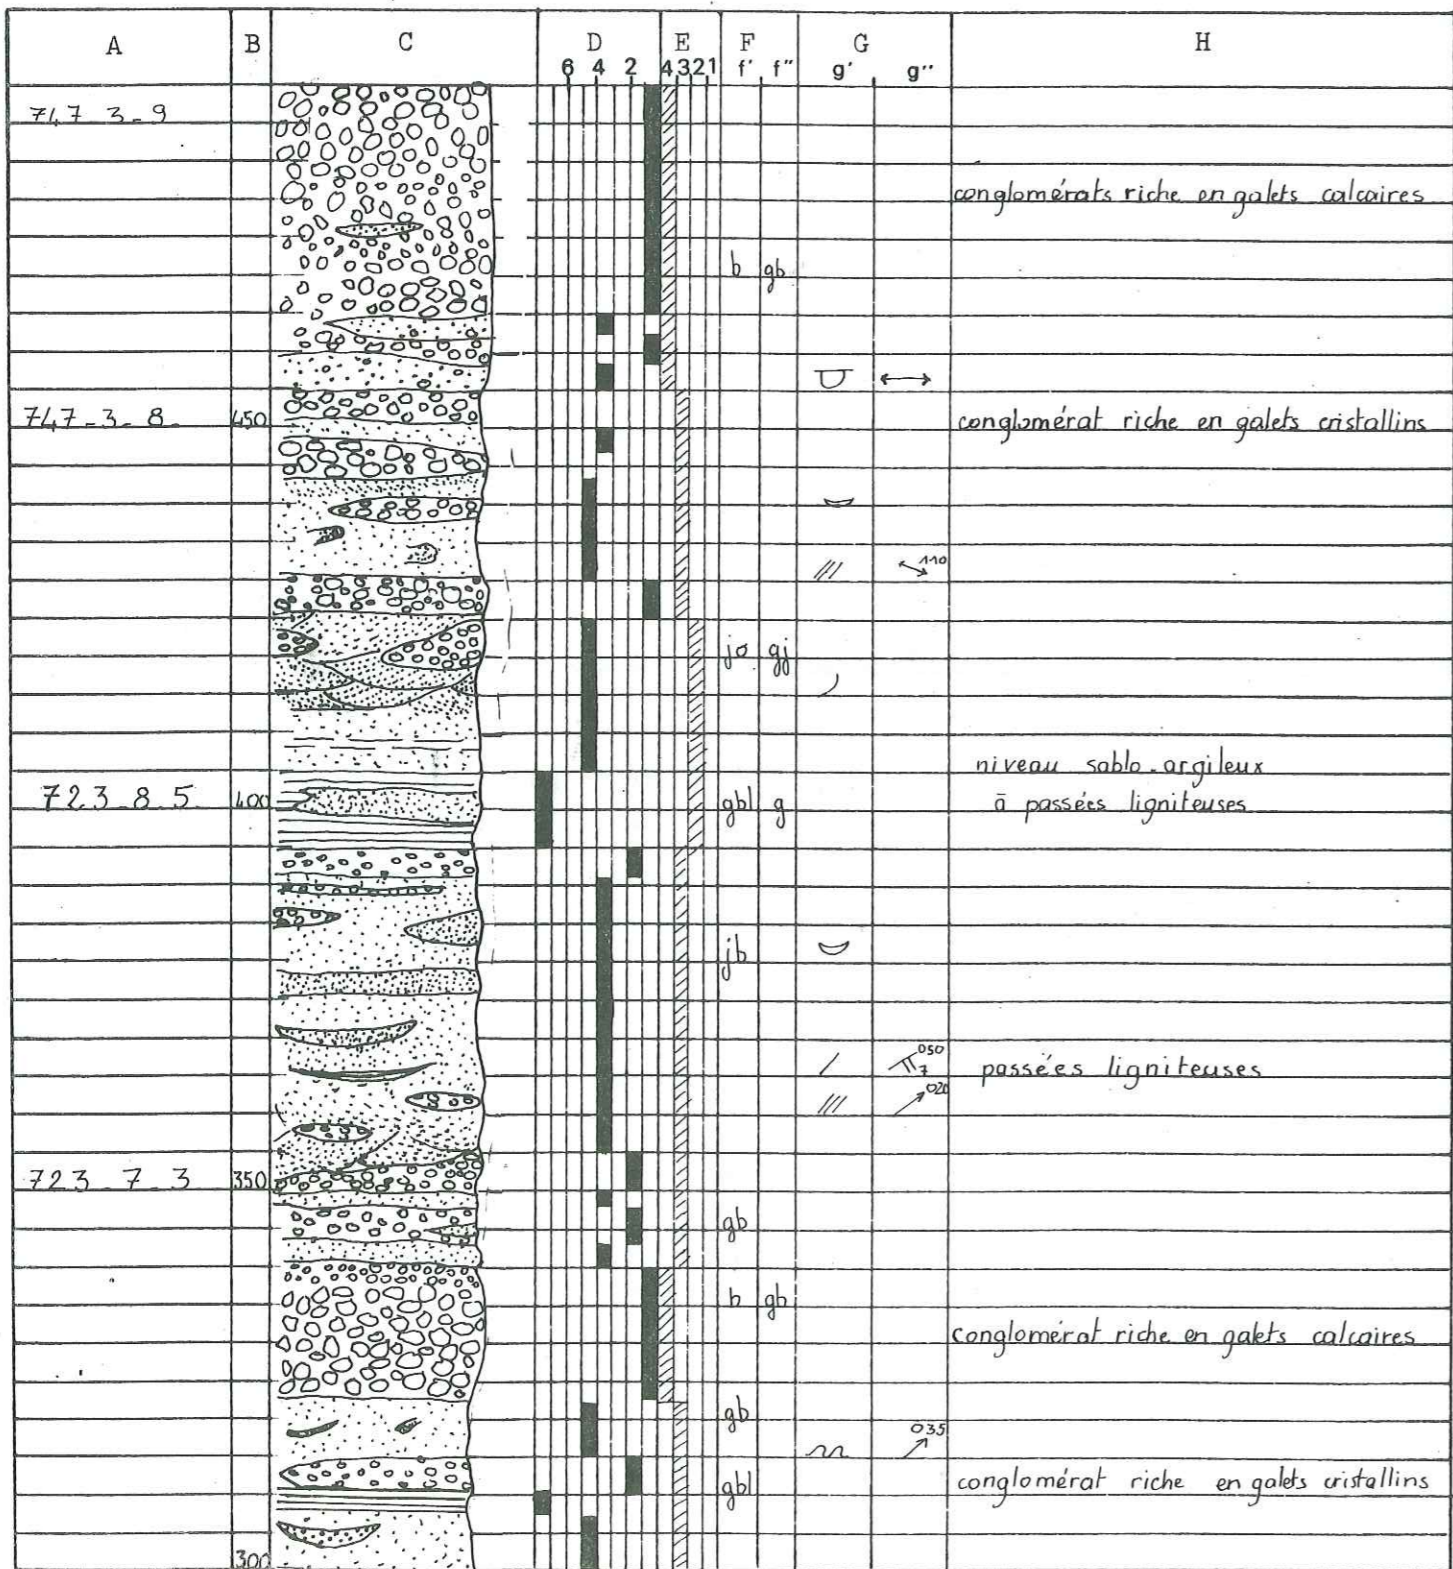 A B C D E F G H
6 4 2 4 3 2 1 f' f" g' g"
747 3-9
conglomérats riche en galets calcaires
b gb
747-3-8 450 conglomérat riche en galets cristallins
110
jo gj
niveau sablo-argileux
723-8-5 400 gbl g à passées ligniteuses
jb
050
7 passées ligniteuses
020
723-7-3 350
gb
b gb
conglomérat riche en galets calcaires
gb
035
gbl conglomérat riche en galets cristallins
300